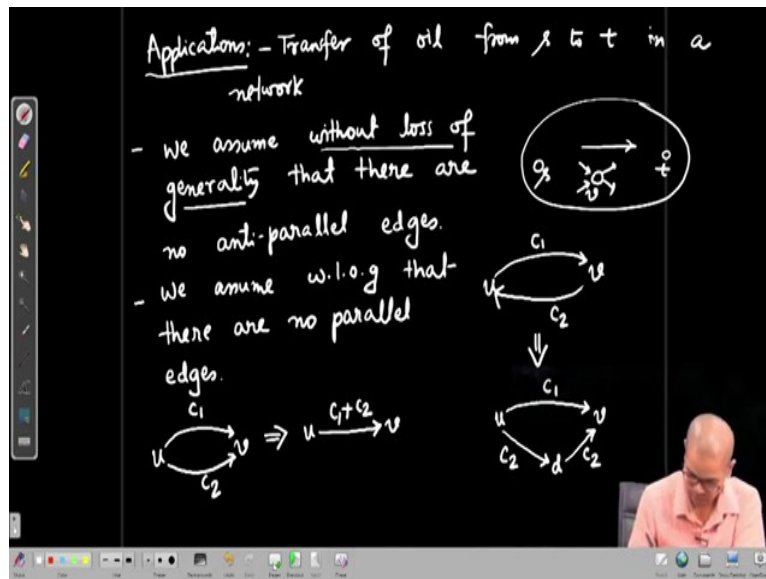 Applications: - Transfer of oil from s to t in a
network
- we assume without loss of
generality that there are
no anti-parallel edges.
- We assume w.l.o.g that
there are no parallel
edges.
s v t
c1
u v
c2
⇓
c1
u v
c2 d c2
c1
u v ⇒ u c1+c2 v
c2